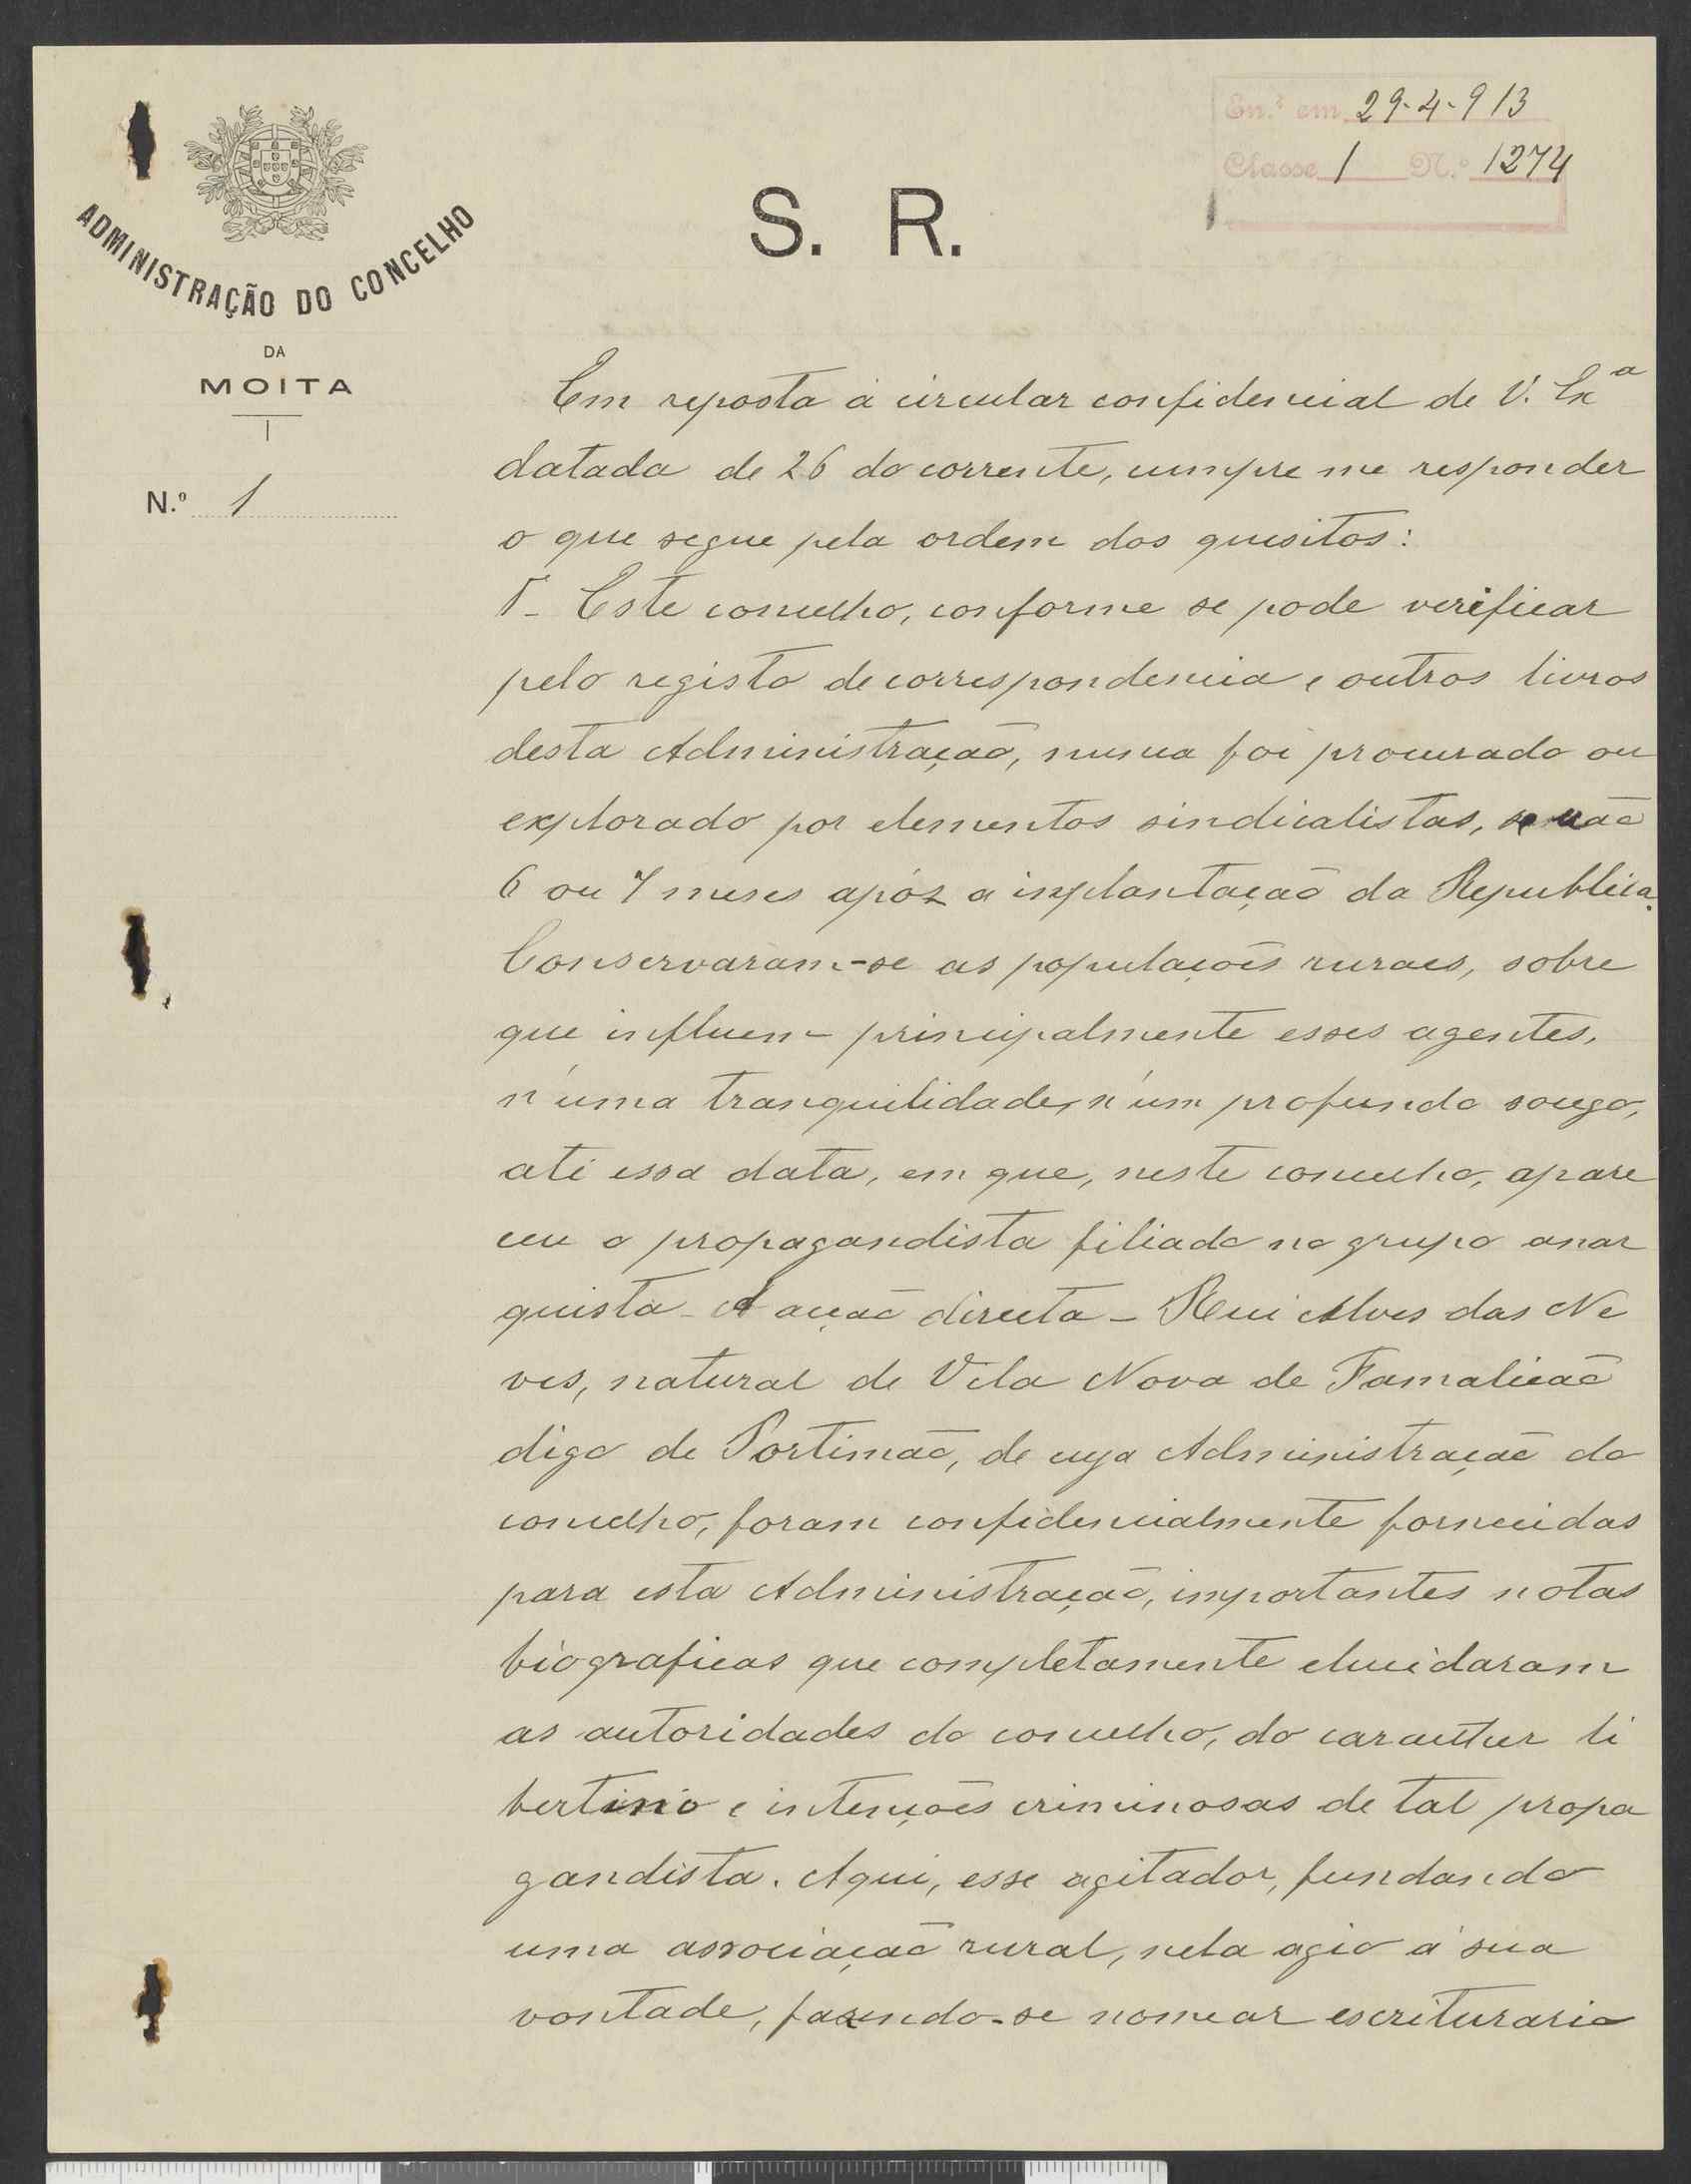 En.ª em 29-4-913
Classe 1 N.º 1274
ADMINISTRAÇÃO DO CONCELHO
DA
MOITA
N.º 1
S. R.
Em reposta á circular confidencial de V. Exª
datada de 26 do corrente, cumpre me responder
o que segue pela ordem dos quesitos:
1º - Este concelho, conforme se pode verificar
pelo registo de correspondencia e outros livros
desta Administração, nunca foi procurado ou
explorado por elementos sindicalistas, se não
6 ou 7 meses apóz a implantação da Republica.
Conservaram-se as populações ruraes, sobre
que influem principalmente esses agentes,
n'uma tranquilidade, n'um profundo socego,
até essa data, em que, neste concelho, apare
ceu o propagandista filiado no grupo anar
quista - A acção directa - Rui Alves das Ne
ves, natural de Vila Nova de Famalicão
digo de Portimão, de cuja Administração do
concelho, foram confidencialmente fornecidas
para esta Administração, importantes notas
biograficas que completamente elucidaram
as autoridades do concelho, do caracther li
bertino e intenções criminosas de tal propa
gandista. Aqui, esse agitador, fundando
uma associação rural, nela agio á sua
vontade, fazendo-se nomear escriturario